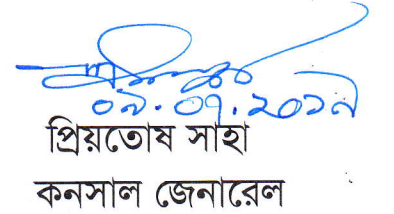 ০৯.০৭.২০১৭
প্রিয়তোষ সাহা
কনসাল জেনারেল